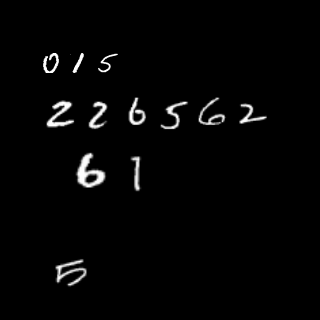 0 1 5
2 2 6 5 6 2
6 1
5